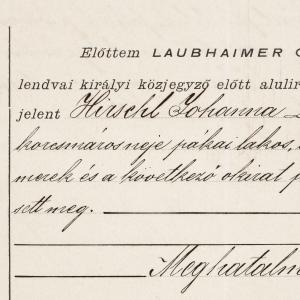 Előttem LAUBHAIMER
lendvai királyi közjegyző előtt alulir
jelent Hirschl Johanna
korcsmáros neje pákai lakos,
merek és a következő okirat
sett meg.
Meghatalm